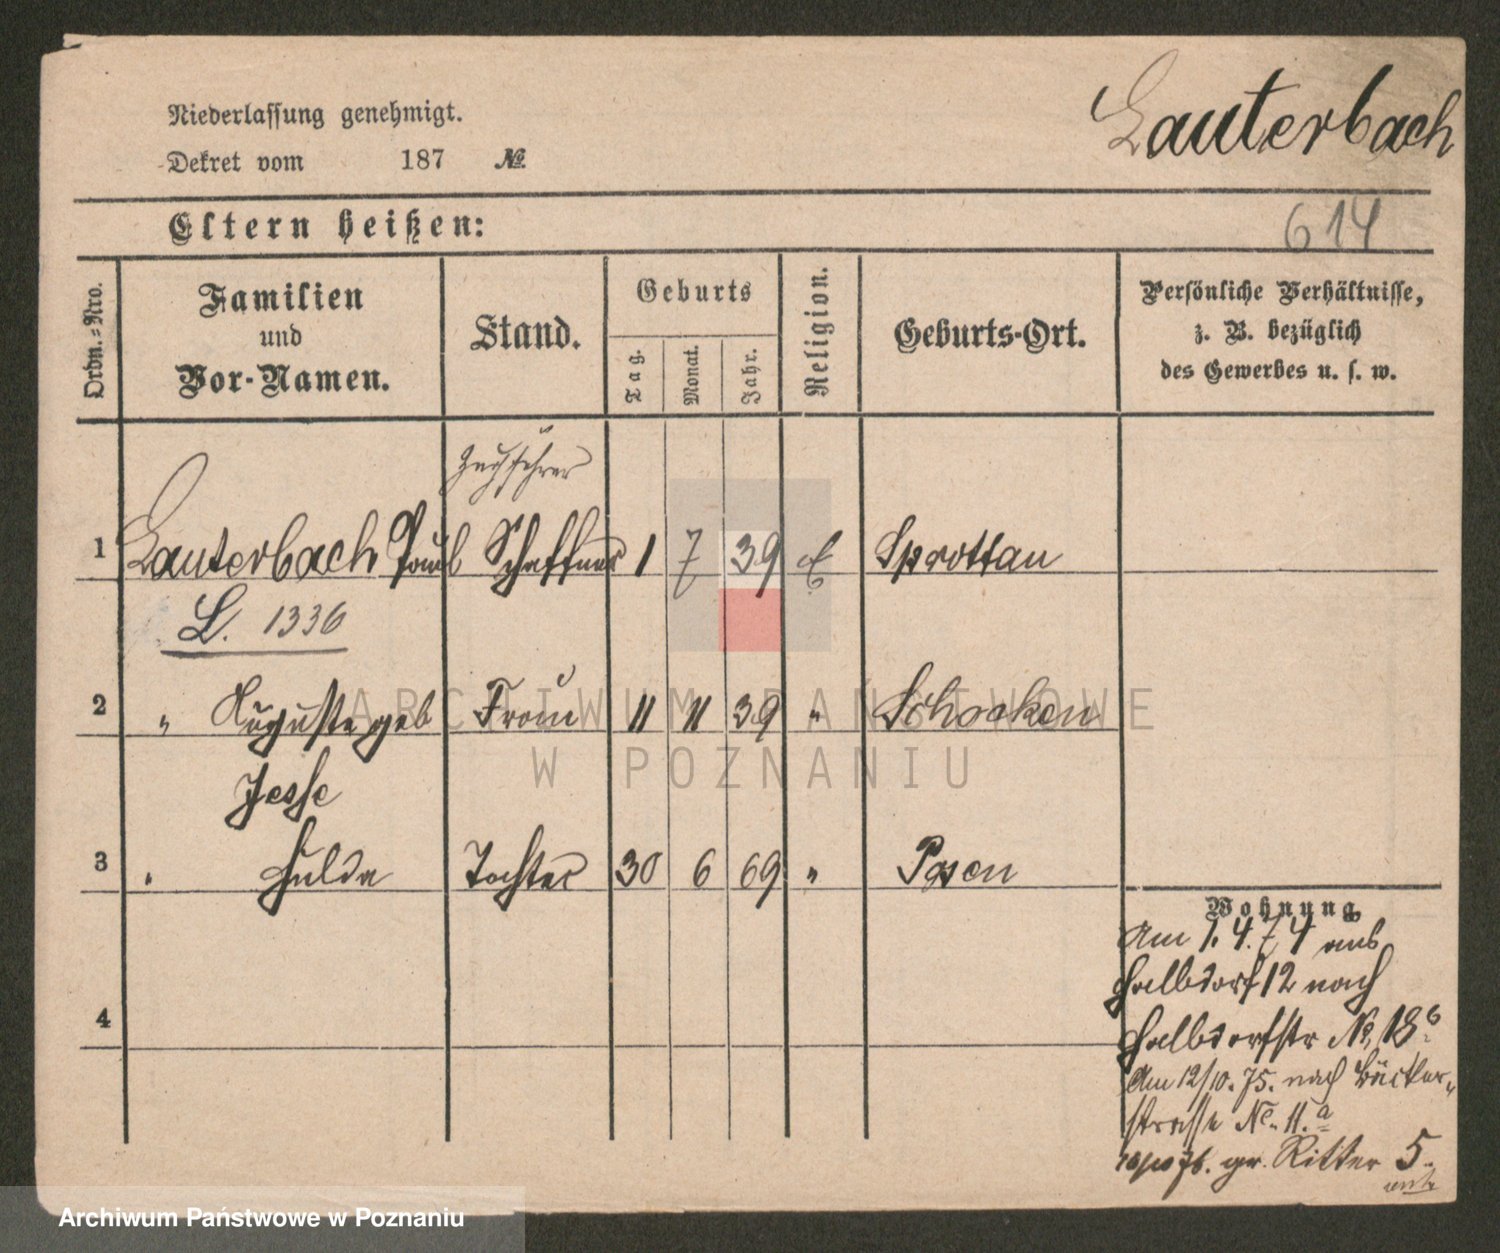 Niederlassung genehmigt.
Lauterbach
Dekret vom 187 №
Eltern heißen:
614
Ordn.-Nro.
Familien und Vor-Namen.
Stand.
Geburts
Tag.
Monat.
Jahr.
Religion.
Geburts-Ort.
Persönliche Verhältnisse,
z. B. bezüglich
des Gewerbes u. s. w.
Zugführer
1 Lauterbach Paul Schaffner 1 7 39 E Sprottau
L. 1336
2 " Auguste geb Frau 11 11 39 " Schocken
Jesse
3 " Hulda Tochter 30 6 69 " Posen
4
Wohnung
Am 1. 4. 74 aus
Halbdorf 12 nach
Halbdorfstr No 18
Am 12/10. 75. nach Bäcker-
strasse No. 11.a
10/10 76. gr. Ritter 5.
ARCHIWUM PAŃSTWOWE
W POZNANIU
Archiwum Państwowe w Poznaniu